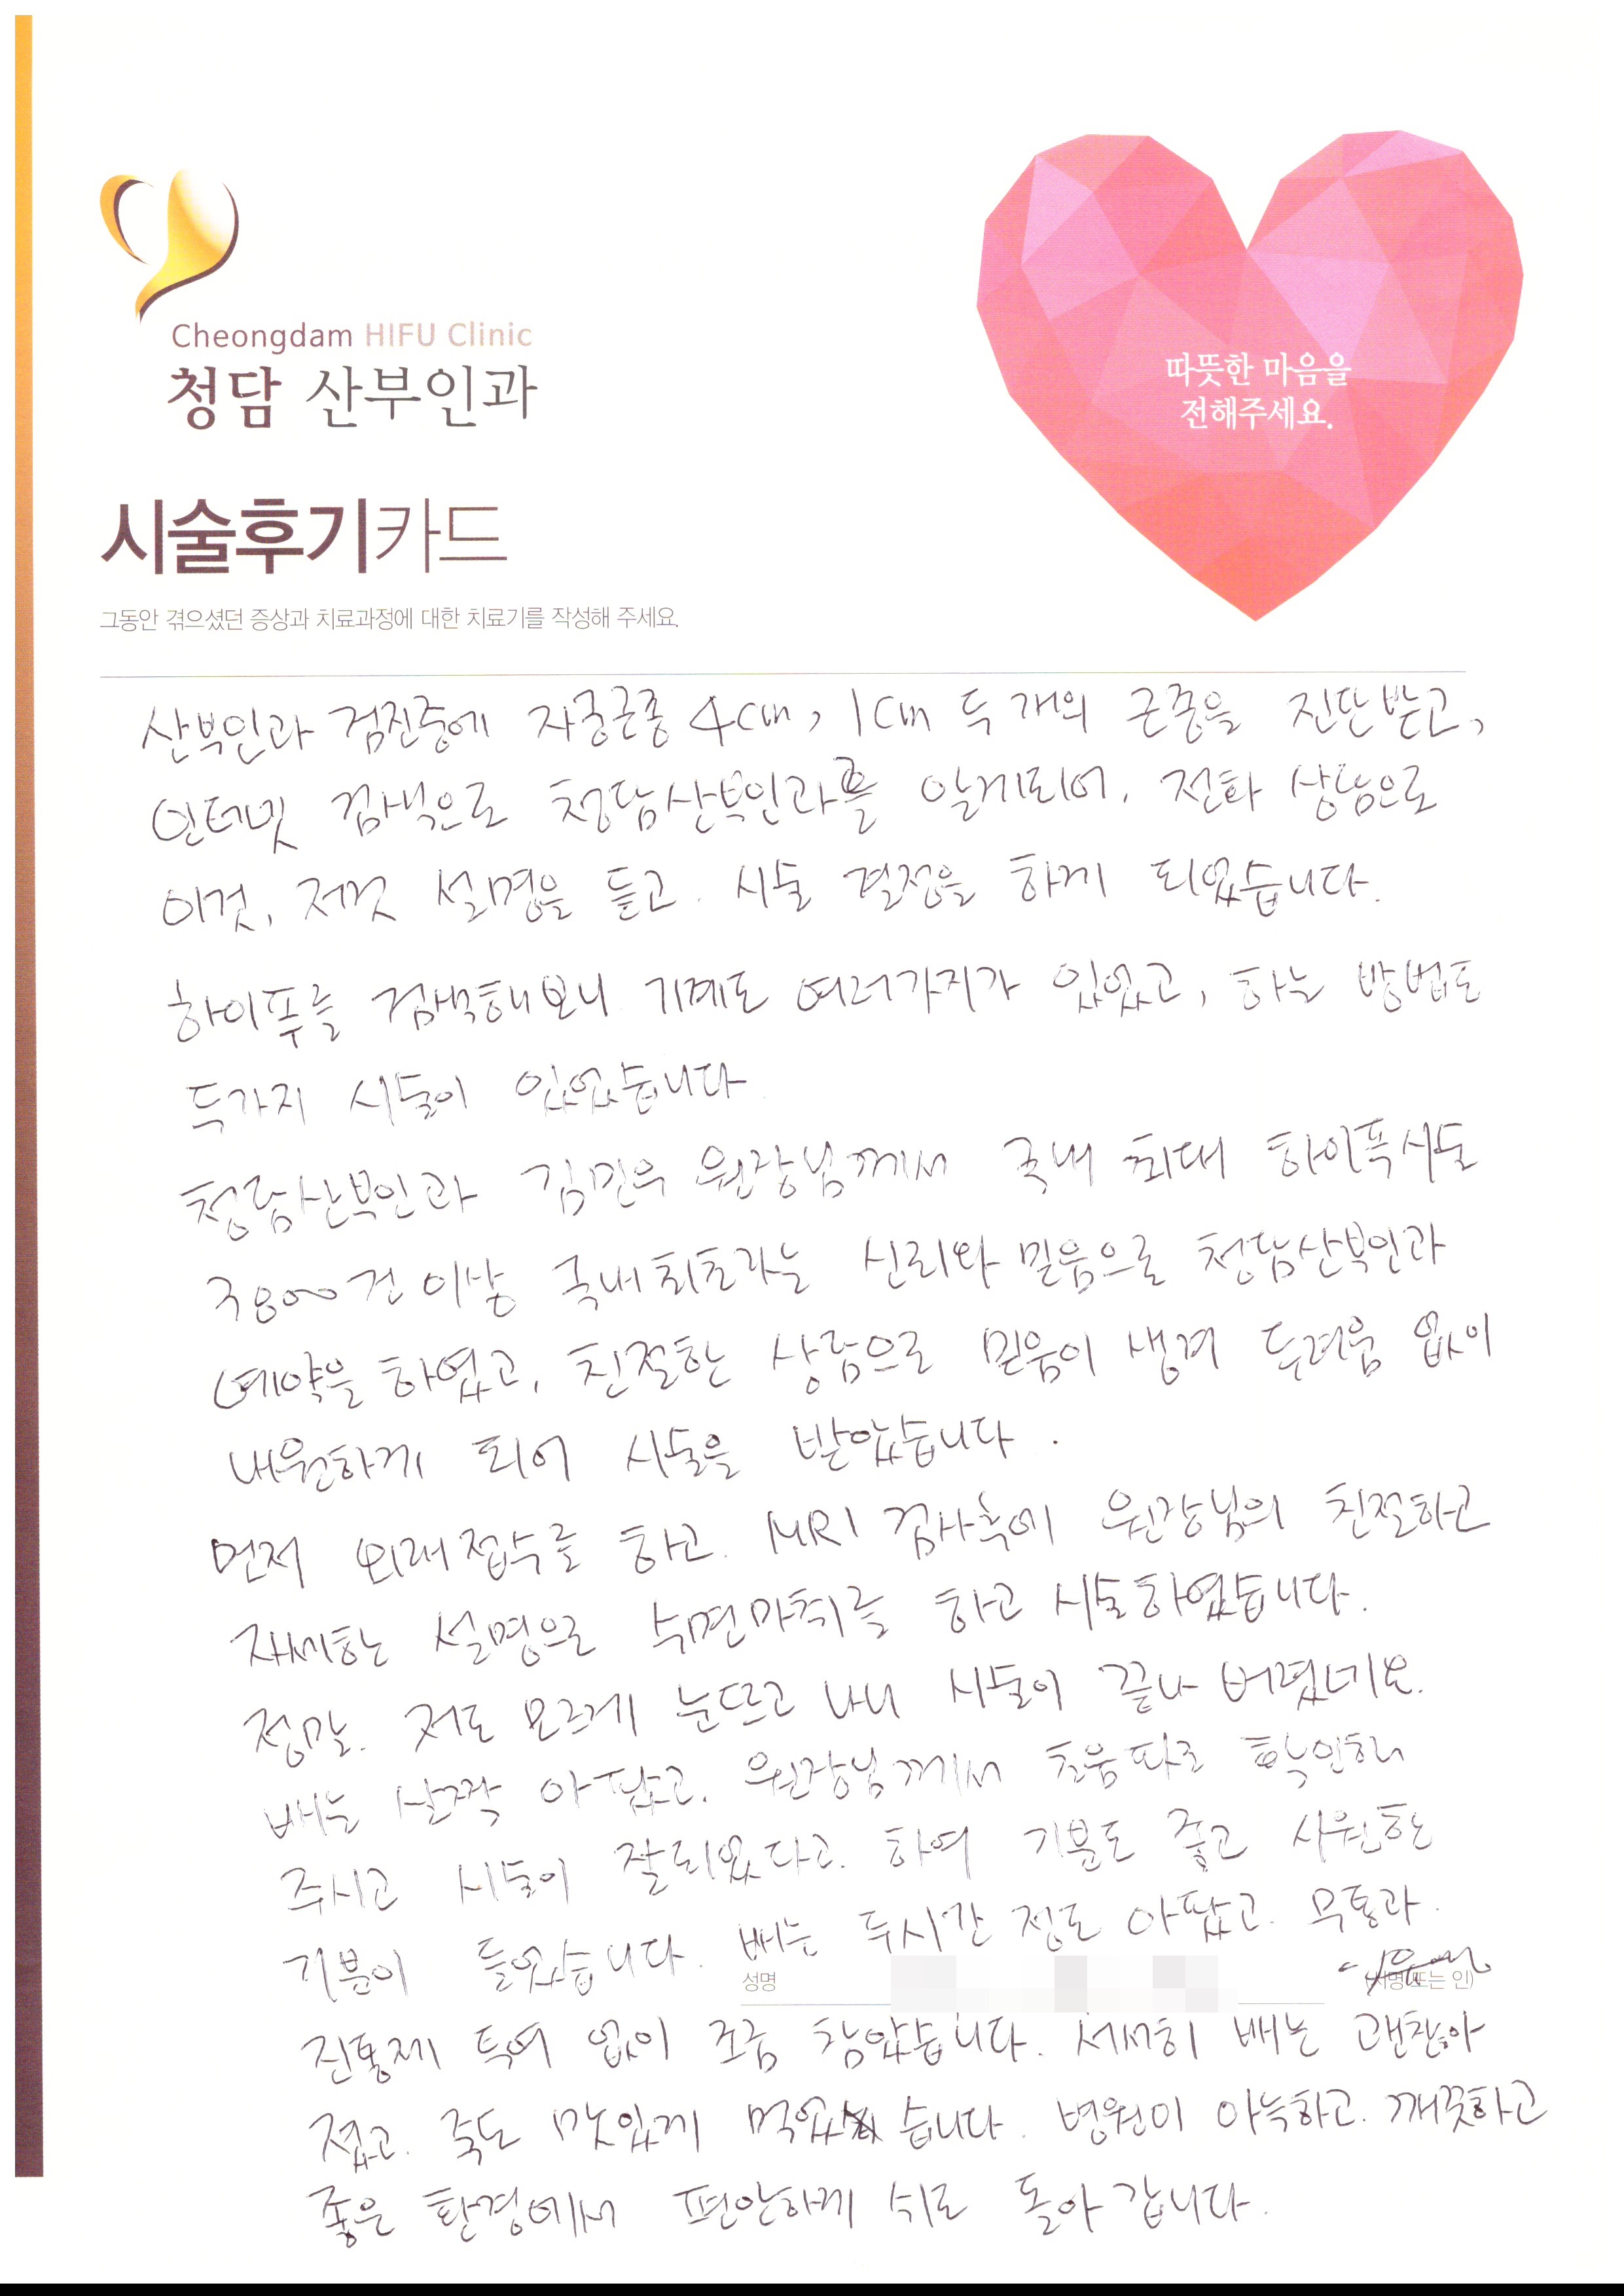 Cheongdam HIFU Clinic
청담 산부인과
따뜻한 마음을
전해주세요.
시술후기카드
그동안 겪으셨던 증상과 치료과정에 대한 치료기를 작성해 주세요.
산부인과 검진중에 자궁근종 4cm, 1cm 두 개의 근종을 진단받고,
인터넷 검색으로 청담산부인과를 알게되어. 전화 상담으로
이것, 저것 설명을 듣고. 시술 결정을 하게 되었습니다.
하이푸를 검색해보니 기계도 여러가지가 있었고, 하는 방법도
두가지 시술이 있었습니다
청담산부인과 김민우 원장님께서 국내 최대 하이푸시술
3800건 이상 국내최초라는 신뢰와 믿음으로 청담산부인과
예약을 하였고, 친절한 상담으로 믿음이 생겨 두려움 없이
내원하게 되어 시술을 받았습니다.
먼저 외래접수를 하고. MRI 검사후에 원장님의 친절하고
자세한 설명으로 수면마취를 하고 시술하였습니다.
정말. 저도 모르게 눈뜨고 나니 시술이 끝나 버렸네요.
배는 살짝 아팠고. 원장님께서 초음파로 확인해
주시고 시술이 잘되었다고. 하여 기분도 좋고 시원한
기분이 들었습니다. 배는 두시간 정도 아팠고. 무통과.
성명 (서명 또는 인)
진통제 투여 없이 조금 참았습니다. 서서히 배는 괜찮아
졌고. 죽도 맛있게 먹었습니다. 병원이 아늑하고. 깨끗하고
좋은 환경에서 편안하게 쉬고 돌아 갑니다.